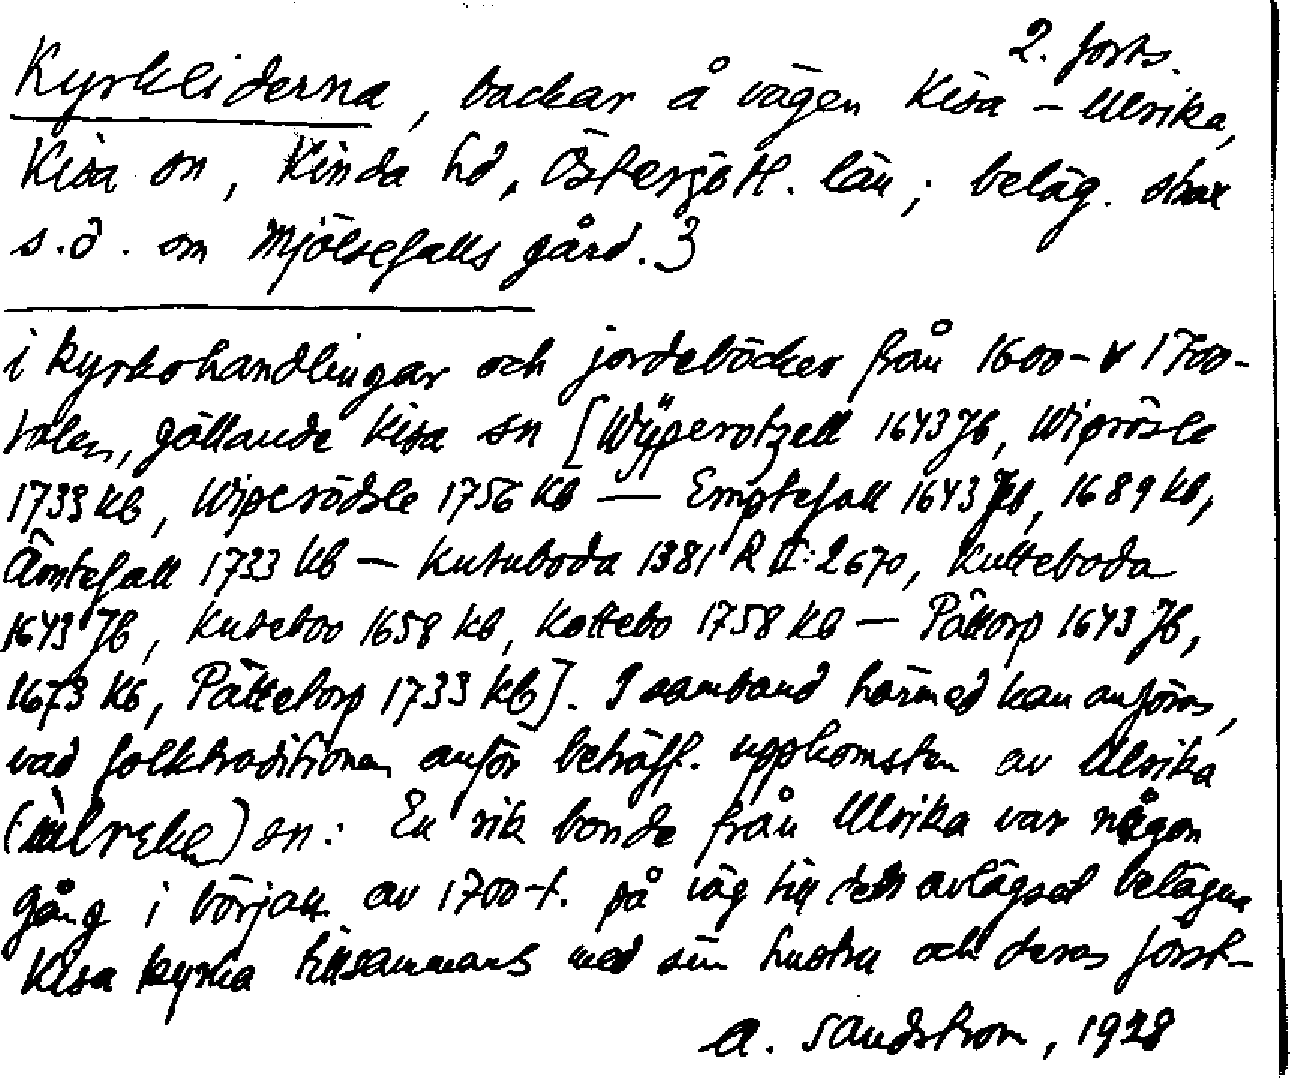 2. forts.
Kyrkliderna, backar å vägen Kisa – Ulrika,
Kisa sn, Kinda hd, Östergötl. län; beläg. strax
s.ö. om Mjölsefalls gård. 3
i kyrkohandlingar och jordeböcker från 1600- & 1700-
talen, gällande Kisa sn [Wijperotzell 1643 Jb, Wiprösle
1733 kb, Wiperödsle 1756 kb — Emptefall 1643 Jb, 1689 kb,
Ämtefall 1733 kb — Kutuboda 1381 R II: 2670, Kutteboda
1643 Jb, Kuteboo 1658 kb, Kottebo 1758 kb — Påttorp 1643 Jb,
1673 kb, Påttetorp 1733 kb]. I samband härmed kan anföras,
vad folktraditionen anför beträff. uppkomsten av Ulrika
sn: En rik bonde från Ulrika var någon
gång i början av 1700-t. på väg till den avlägset belägna
Kisa kyrka tillsammans med sin hustru och deras först-
A. Sandström, 1928